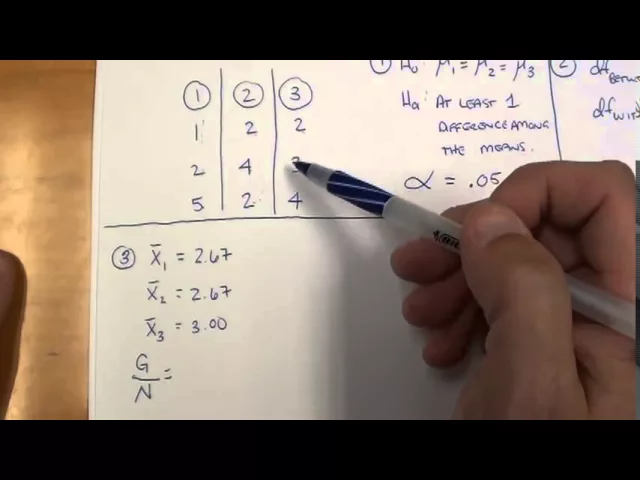 ① ② ③
1 2 2
2 4 3
5 2 4
① H₀: μ₁ = μ₂ = μ₃
Hₐ: AT LEAST 1
DIFFERENCE AMONG
THE MEANS.
α = .05
②
③ X̄₁ = 2.67
X̄₂ = 2.67
X̄₃ = 3.00
G/N =